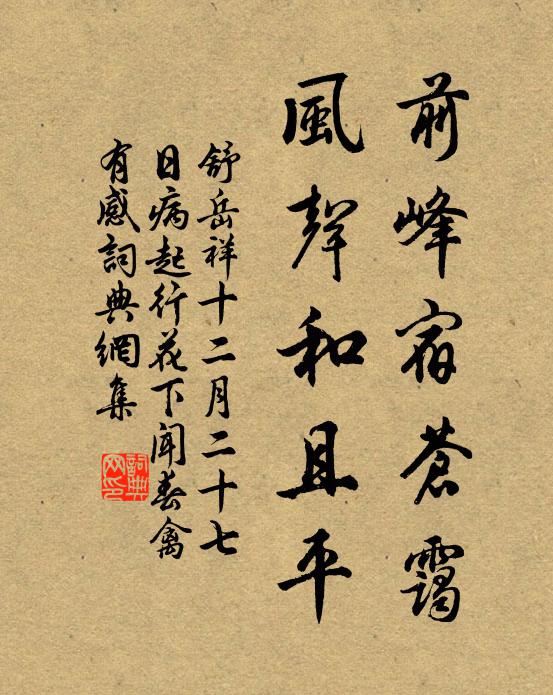 前峰宿蒼靄
風聲和且平
舒岳祥十二月二十七
日病起行花下聞春禽
有感詞典網集
詞典
网印